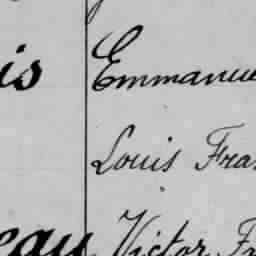 is Emmanue
Louis Fra
eau Victor Fr